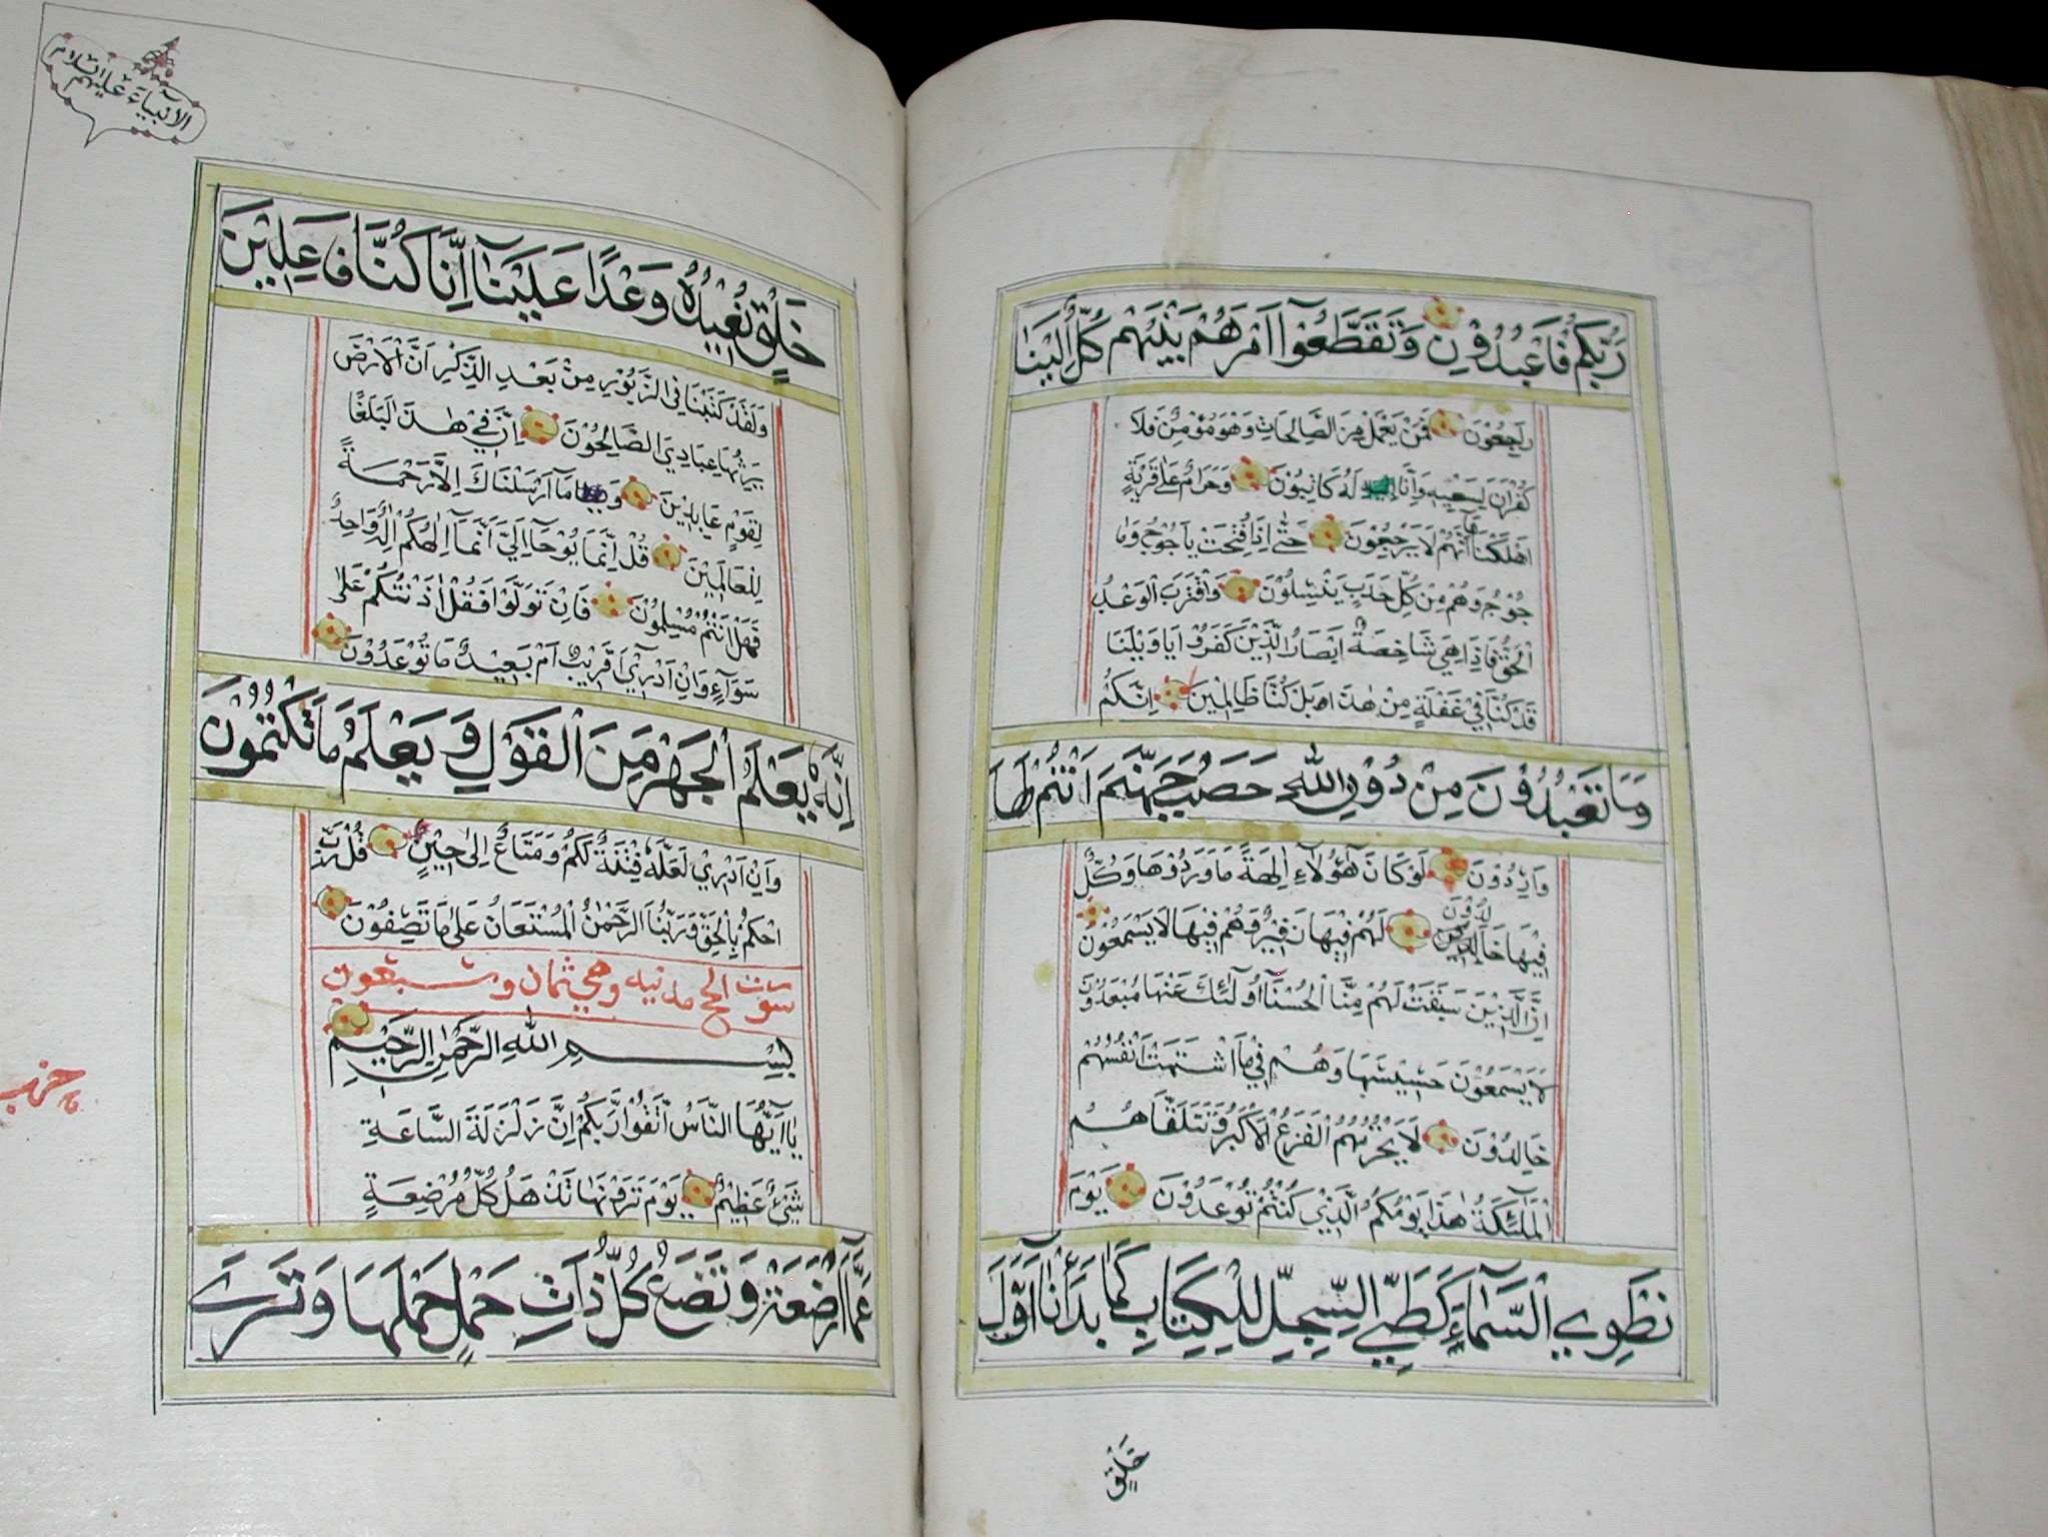 رَبُّكُمْ فَاعْبُدُوْنِ وَتَقَطَّعُوْآ اَمْرَهُمْ بَيْنَهُمْ كُلٌّ اِلَيْنَا
رٰجِعُوْنَ فَمَنْ يَعْمَلْ مِنَ الصَّالِحَاتِ وَهُوَ مُؤْمِنٌ فَلَا
كُفْرَانَ لِسَعْيِهِ وَاِنَّا لَهُ كَاتِبُوْنَ وَحَرَامٌ عَلٰى قَرْيَةٍ
اَهْلَكْنَاهَا اَنَّهُمْ لَا يَرْجِعُوْنَ حَتّٰى اِذَا فُتِحَتْ يَاْجُوْجُ وَمَا
جُوْجُ وَهُمْ مِنْ كُلِّ حَدَبٍ يَنْسِلُوْنَ وَاقْتَرَبَ الْوَعْدُ
الْحَقُّ فَاِذَا هِيَ شَاخِصَةٌ اَبْصَارُ الَّذِيْنَ كَفَرُوْا يَا وَيْلَنَا
قَدْ كُنَّا فِيْ غَفْلَةٍ مِنْ هٰذَا بَلْ كُنَّا ظَالِمِيْنَ اِنَّكُمْ
وَمَا تَعْبُدُوْنَ مِنْ دُوْنِ اللّٰهِ حَصَبُ جَهَنَّمَ اَنْتُمْ لَهَا
وَارِدُوْنَ لَوْ كَانَ هٰؤُلَاءِ اٰلِهَةً مَا وَرَدُوْهَا وَكُلٌّ
لِدُوْنَ
فِيْهَا خَا لَهُمْ فِيْهَا زَفِيْرٌ وَهُمْ فِيْهَا لَا يَسْمَعُوْنَ
اِنَّ الَّذِيْنَ سَبَقَتْ لَهُمْ مِنَّا الْحُسْنٰا اُولٰئِكَ عَنْهَا مُبْعَدُوْنَ
لَا يَسْمَعُوْنَ حَسِيْسَهَا وَهُمْ فِيْ مَا اشْتَهَتْ اَنْفُسُهُمْ
خَالِدُوْنَ لَا يَحْزُنُهُمُ الْفَزَعُ الْاَكْبَرُ وَتَتَلَقَّاهُمُ
الْمَلٰٓئِكَةُ هٰذَا يَوْمُكُمُ الَّذِيْ كُنْتُمْ تُوْعَدُوْنَ يَوْمَ
نَطْوِي السَّمَآءَ كَطَيِّ السِّجِلِّ لِلْكِتَابِ كَمَا بَدَاْنَآ اَوَّلَ
خَلْقٍ
الانبياء عليهم السلام
خَلْقٍ نُعِيْدُهُ وَعْدًا عَلَيْنَآ اِنَّا كُنَّا فَاعِلِيْنَ
وَلَقَدْ كَتَبْنَا فِي الزَّبُوْرِ مِنْ بَعْدِ الذِّكْرِ اَنَّ الْاَرْضَ
يَرِثُهَا عِبَادِيَ الصَّالِحُوْنَ اِنَّ فِيْ هٰذَا لَبَلٰغًا
لِقَوْمٍ عَابِدِيْنَ وَمَآ اَرْسَلْنَاكَ اِلَّا رَحْمَةً
لِلْعَالَمِيْنَ قُلْ اِنَّمَا يُوْحَآ اِلَيَّ اَنَّمَآ اِلٰهُكُمْ اِلٰهٌ وَاحِدٌ
فَهَلْ اَنْتُمْ مُسْلِمُوْنَ فَاِنْ تَوَلَّوْا فَقُلْ اٰذَنْتُكُمْ عَلٰى
سَوَآءٍ وَاِنْ اَدْرِيْ اَقَرِيْبٌ اَمْ بَعِيْدٌ مَا تُوْعَدُوْنَ
اِنَّهُ يَعْلَمُ الْجَهْرَ مِنَ الْقَوْلِ وَيَعْلَمُ مَا تَكْتُمُوْنَ
وَاِنْ اَدْرِيْ لَعَلَّهُ فِتْنَةٌ لَكُمْ وَمَتَاعٌ اِلٰى حِيْنٍ قُلْ رَبِّ
احْكُمْ بِالْحَقِّ وَرَبُّنَا الرَّحْمٰنُ الْمُسْتَعَانُ عَلٰى مَا تَصِفُوْنَ
سورت الحج مدنيه وهي ثمان وسبعون
بِسْمِ اللّٰهِ الرَّحْمٰنِ الرَّحِيْمِ
يٰآ اَيُّهَا النَّاسُ اتَّقُوْا رَبَّكُمْ اِنَّ زَلْزَلَةَ السَّاعَةِ
شَيْءٌ عَظِيْمٌ يَوْمَ تَرَوْنَهَا تَذْهَلُ كُلُّ مُرْضِعَةٍ
عَمَّآ اَرْضَعَتْ وَتَضَعُ كُلُّ ذَاتِ حَمْلٍ حَمْلَهَا وَتَرَى
حزب